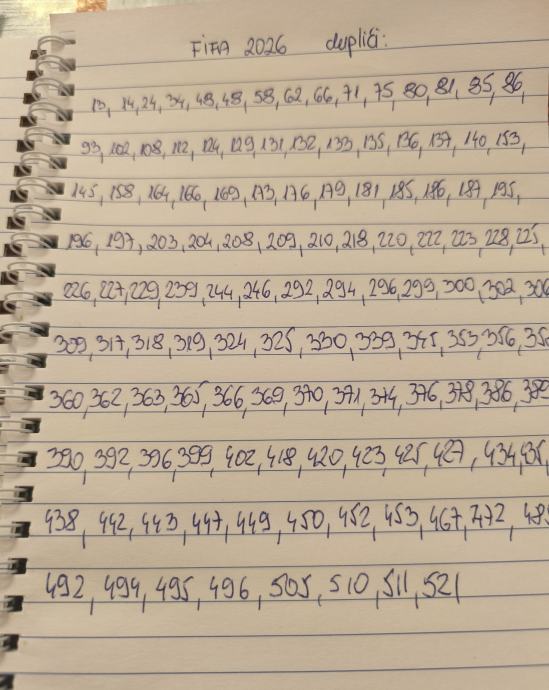 FIFA 2026 duplići:
13, 14, 24, 34, 43, 48, 58, 62, 66, 71, 75, 80, 81, 85, 86,
93, 102, 108, 112, 124, 129, 131, 132, 133, 135, 136, 137, 140, 153,
145, 158, 164, 166, 169, 173, 176, 179, 181, 185, 186, 187, 195,
196, 197, 203, 204, 208, 209, 210, 218, 220, 222, 223, 228, 225,
226, 227, 229, 239, 244, 246, 292, 294, 296, 299, 300, 302, 306
309, 317, 318, 319, 324, 325, 330, 339, 345, 353, 356,
360, 362, 363, 365, 366, 369, 370, 371, 374, 376, 378, 386, 389
390, 392, 396, 399, 402, 418, 420, 423, 425, 427, 434, 435,
438, 442, 443, 447, 449, 450, 452, 453, 467, 472,
492, 494, 495, 496, 505, 510, 511, 521